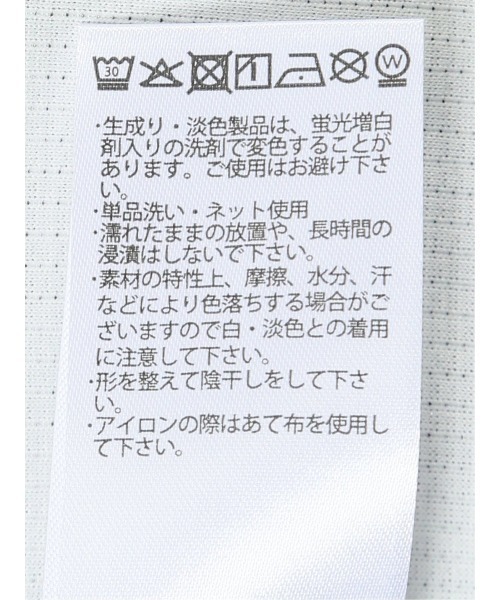 30 W
・生成り・淡色製品は、蛍光増白
剤入りの洗剤で変色することが
あります。ご使用はお避け下さ
い。
・単品洗い・ネット使用
・濡れたままの放置や、長時間の
浸漬はしないで下さい。
・素材の特性上、摩擦、水分、汗
などにより色落ちする場合がご
ざいますので白・淡色との着用
に注意して下さい。
・形を整えて陰干しをして下さ
い。
・アイロンの際はあて布を使用し
て下さい。